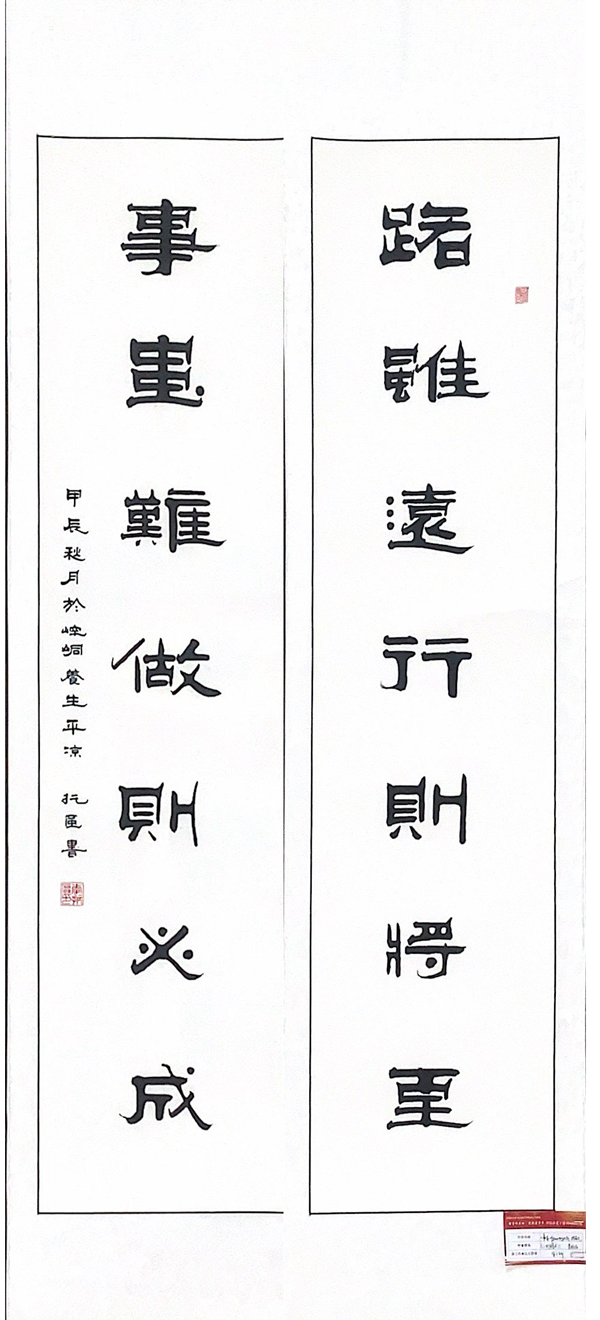 路雖遠行則將至
事雖難做則必成
甲辰秋月於崆峒養生平凉
書